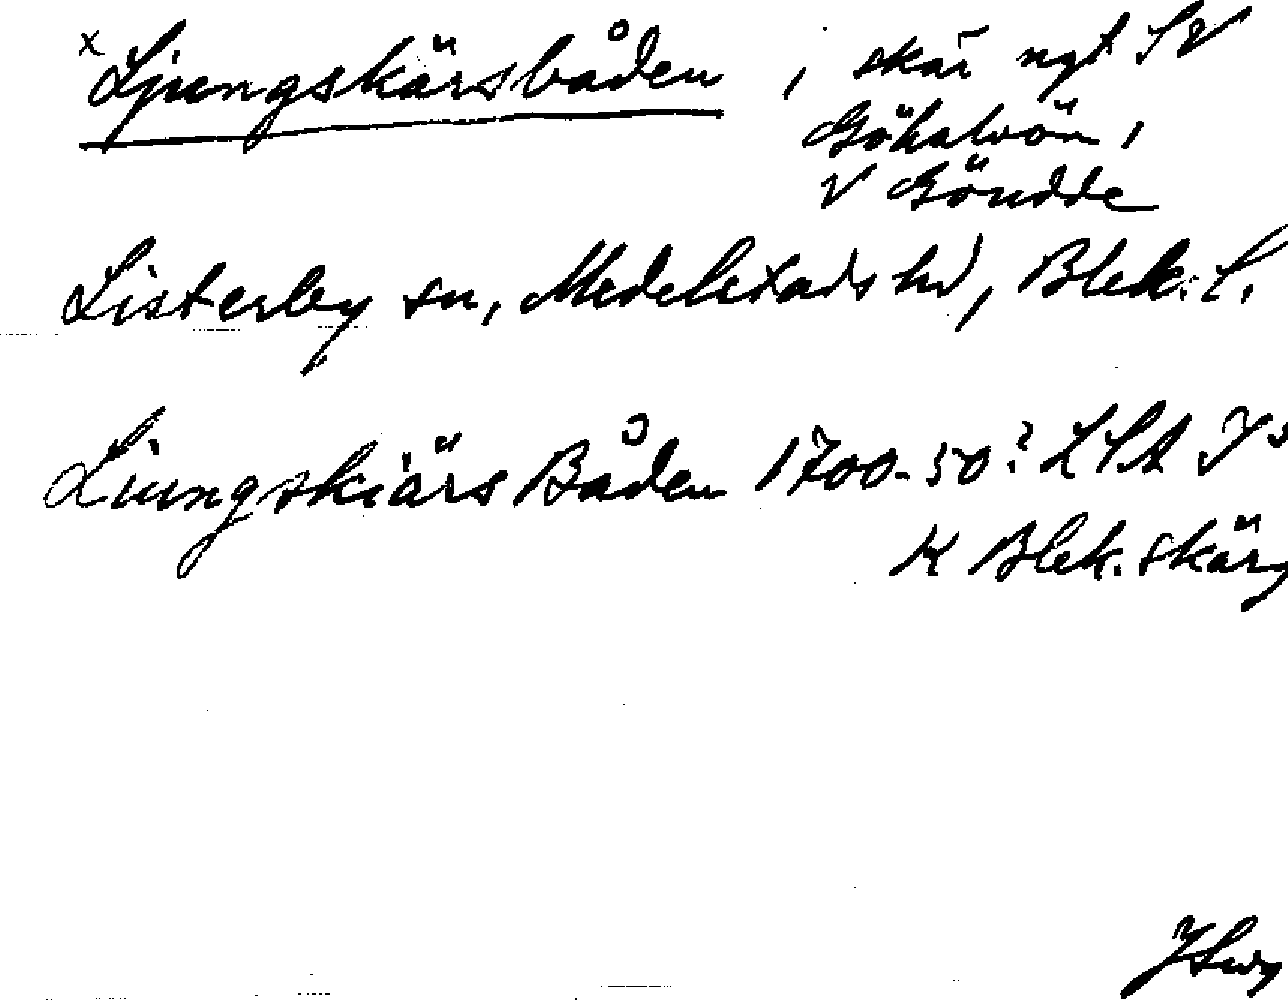 x Ljungskärsbåden, skär ngt SV
Göhalvön,
V Göudde
Listerby sn, Medelstads hd, Blek. l.
Liungskiärs Båden 1700-50? LSA
K Blek. skärg